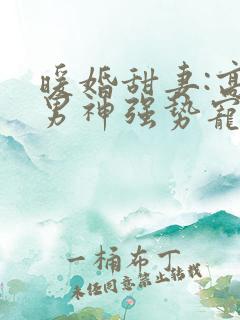 暖婚甜妻:高
男神强势宠
一桶布丁
未经同意禁止转载